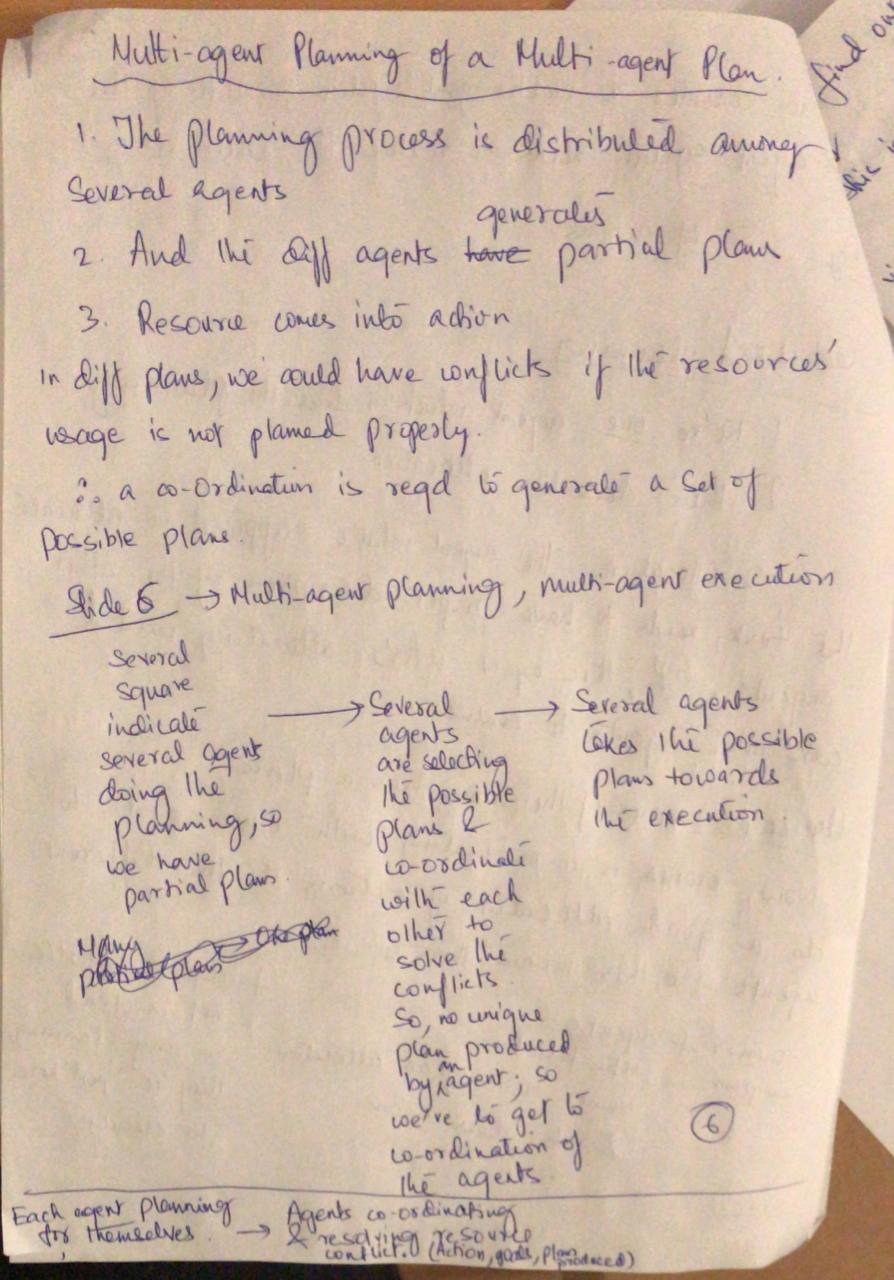 Multi-agent Planning of a Multi-agent Plan.
1. The planning process is distributed among
Several agents
generates
2. And the diff agents have partial plans
3. Resource comes into action
In diff plans, we could have conflicts if the resources'
usage is not planned properly.
∴ a co-ordination is reqd to generate a set of
possible plans.
Slide 6 → Multi-agent planning, multi-agent execution
Several
square
indicate
several agents
doing the
planning, so
we have
partial plans.
Many
partial plans → One plan
→ Several
agents
are selecting
the possible
plans &
co-ordinate
with each
other to
solve the
conflicts.
So, no unique
plan produced
by an agent; so
we've to get to
co-ordination of
the agents.
→ Several agents
takes the possible
plans towards
the execution.
6
Each agent planning
for themselves.
→ Agents co-ordinating
& resolving resource
conflict. (Action, goals, plans
produced)
find out
this